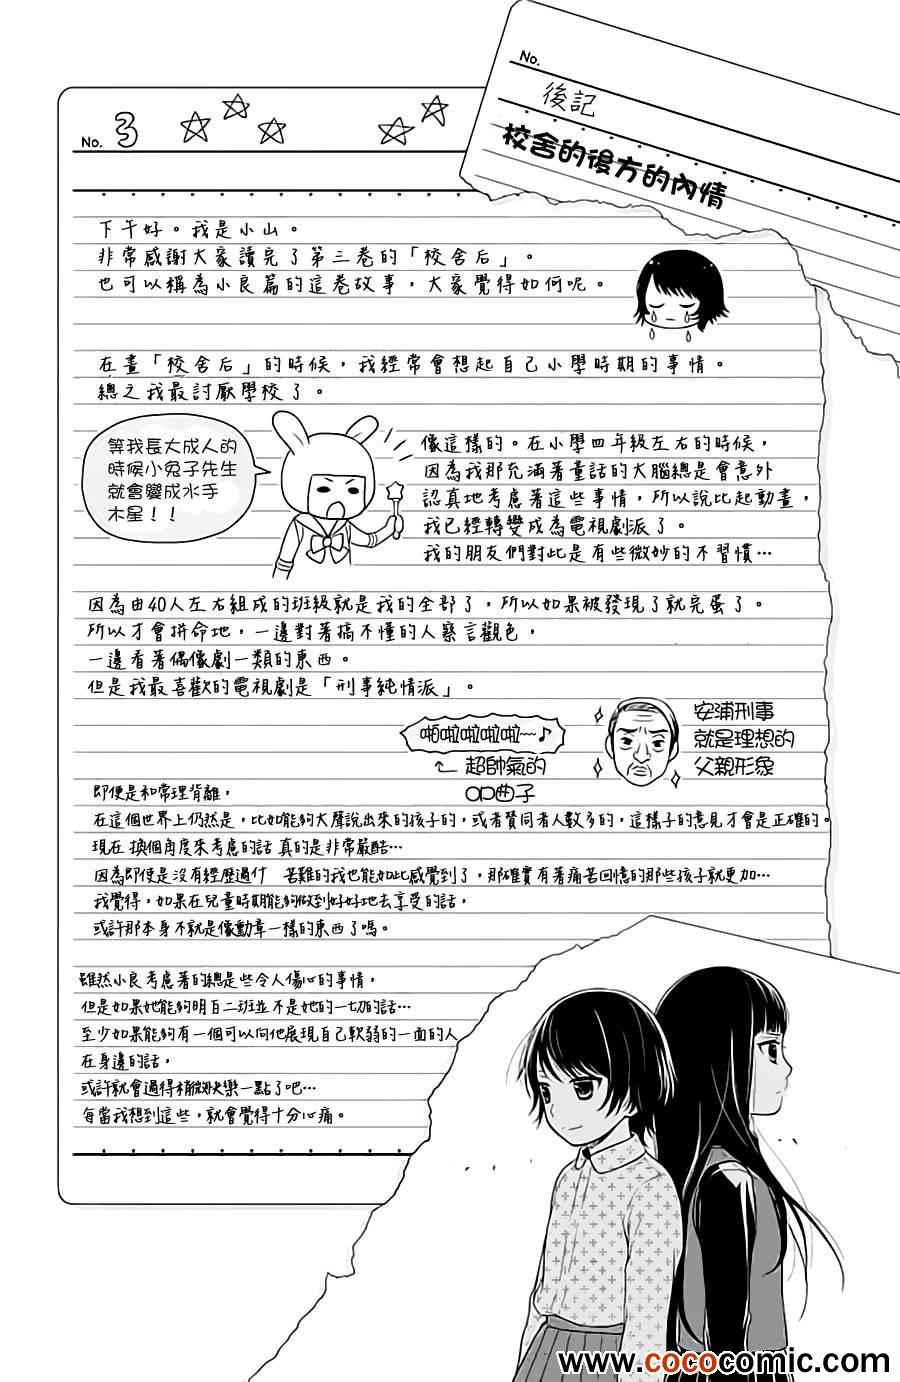 No.
後記
校舍的後方的內情
No. 3
下午好。我是小山。
非常感謝大家讀完了第三卷的「校舍后」。
也可以稱為小良篇的這卷故事，大家覺得如何呢。
在畫「校舍后」的時候，我經常會想起自己小學時期的事情。
總之我最討厭學校了。
等我長大成人的
時候小兔子先生
就會變成水手
木星！！
像這樣的。在小學四年級左右的時候，
因為我那充滿著童話的大腦總是會意外
認真地考慮著這些事情，所以說比起動畫，
我已經轉變成為電視劇派了。
我的朋友們對此是有些微妙的不習慣…
因為由40人左右組成的班級就是我的全部了，所以如果被發現了就完蛋了。
所以才會拼命地，一邊對著搞不懂的人察言觀色，
一邊看著偶像劇一類的東西。
但是我最喜歡的電視劇是「刑事純情派」。
啪啦啦啦啦~♪
超帥氣的
OP曲子
安浦刑事
就是理想的
父親形象
即便是和常理背離，
在這個世界上仍然是，比如能夠大聲說出來的孩子的，或者贊同者人數多的，這樣子的意見才會是正確的。
現在 換個角度來考慮的話 真的是非常嚴酷…
因為即便是沒有經歷過什 苦難的我也能如此感覺到了，那確實有著痛苦回憶的那些孩子就更加…
我覺得，如果在兒童時期能夠做到好好地去享受的話，
或許那本身不就是像勳章一樣的東西了嗎。
雖然小良考慮著的總是些令人傷心的事情，
但是如果她能夠明白二班並不是她的一切的話…
至少如果能夠有一個可以向他展現自己軟弱的一面的人
在身邊的話，
或許就會過得稍微快樂一點了吧…
每當我想到這些，就會覺得十分心痛。
www.cococomic.com